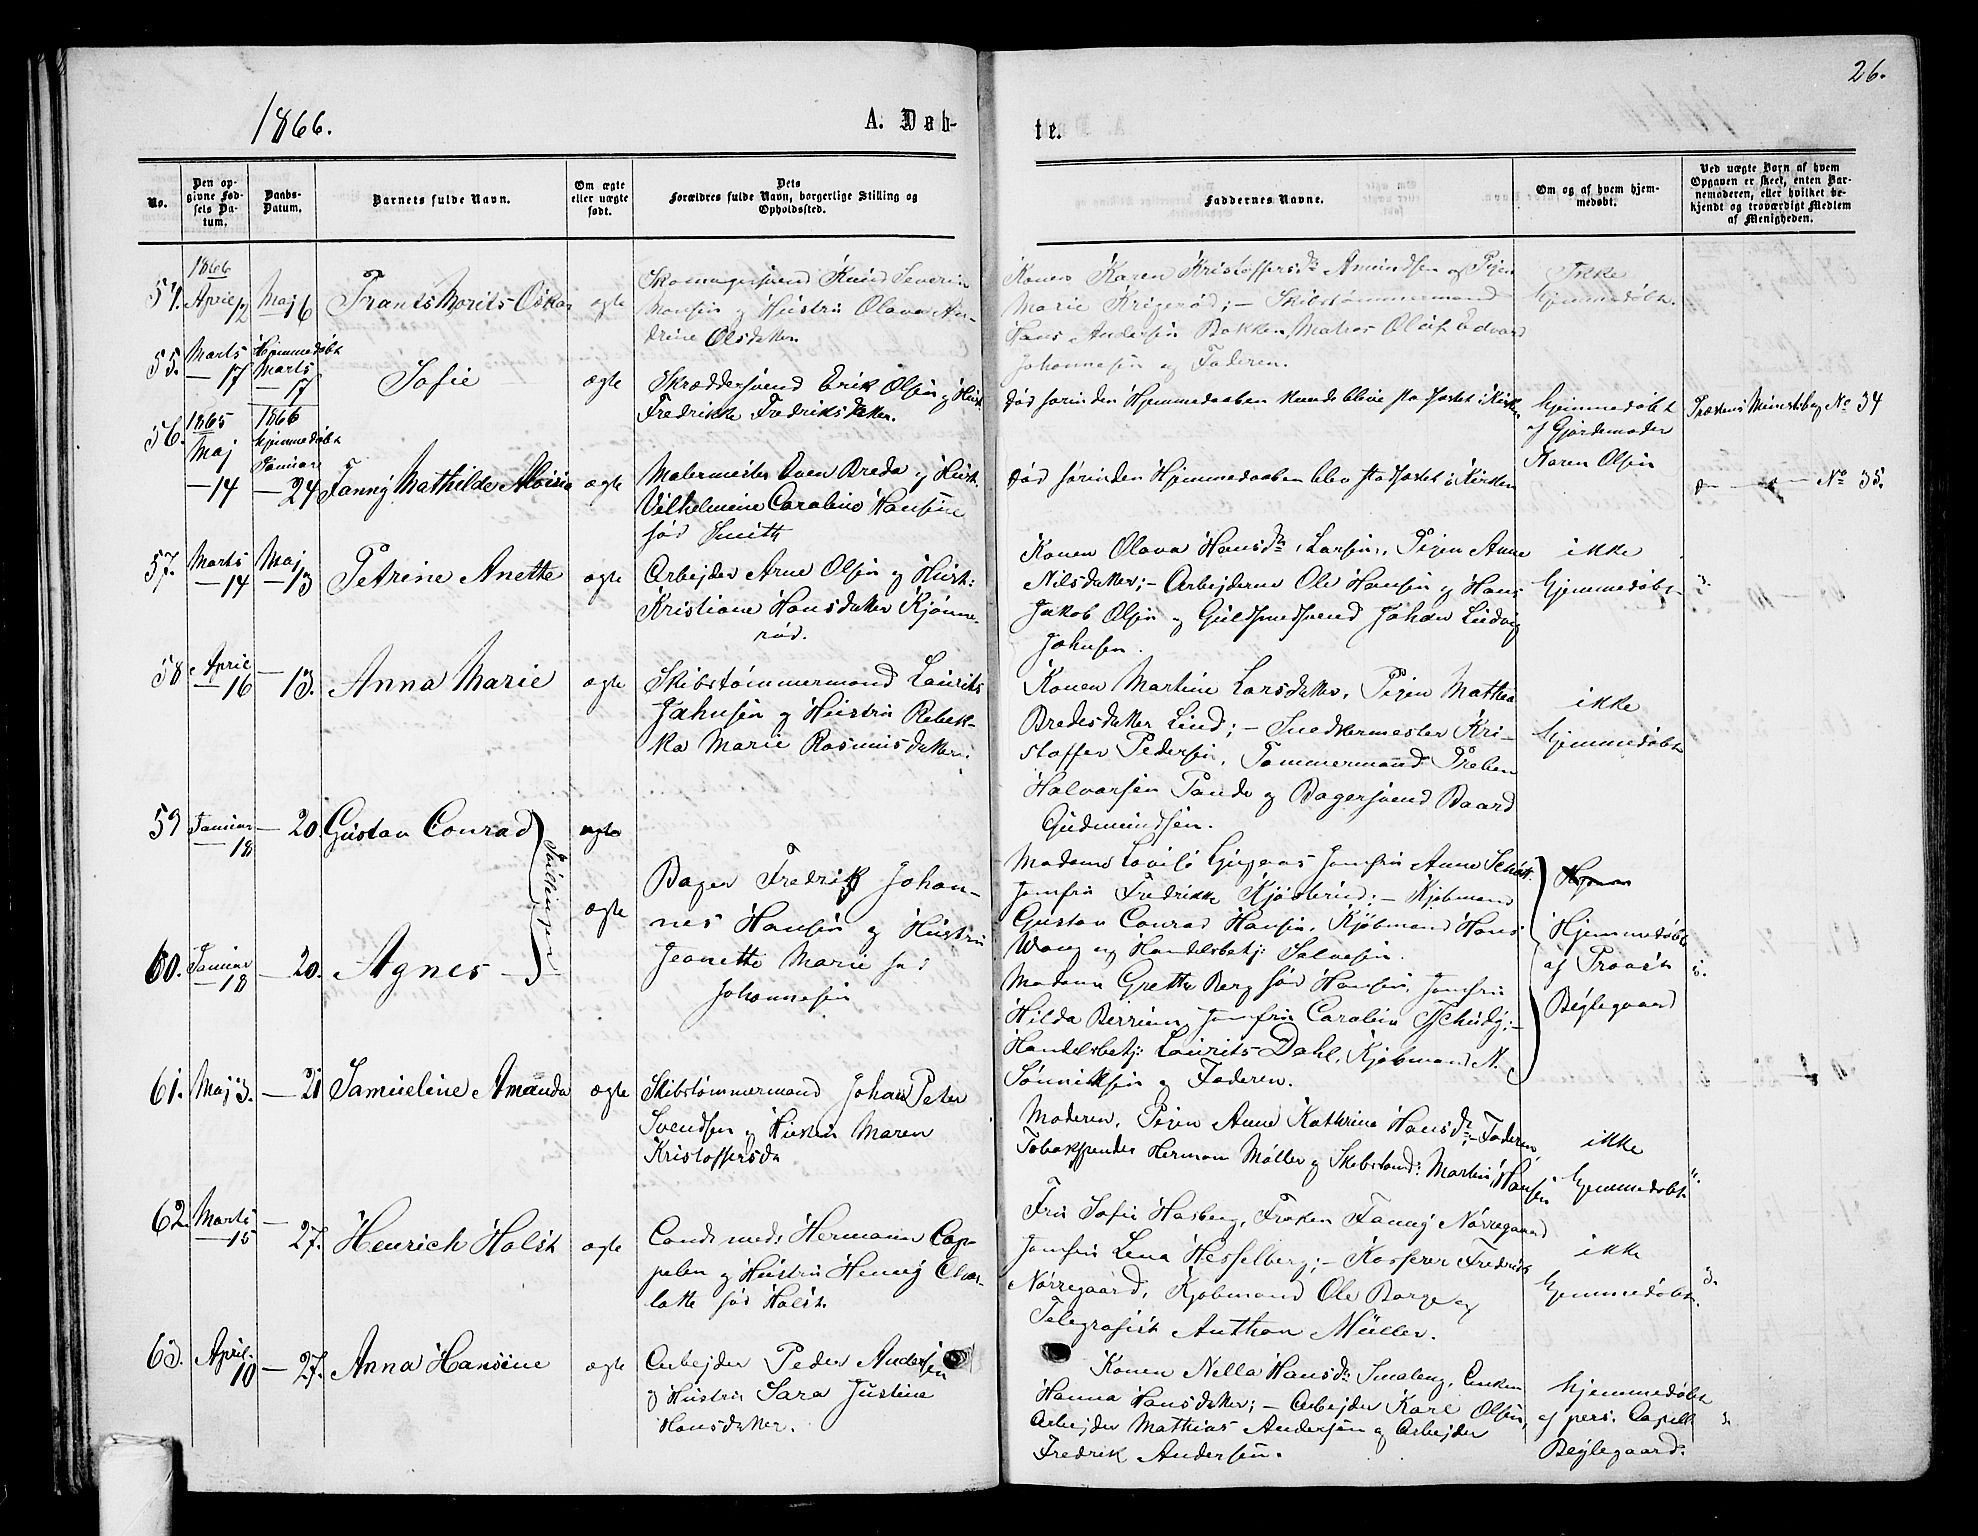 26.
1866.
A. Døb-
te.
No.
Den op-
givne Fød-
sels Da-
tum.
Daabs-
Datum.
Barnets fulde Navn.
Om ægte
eller uægte
født.
Dets
Forældres fulde Navn, borgerlige Stilling og
Opholdssted.
Faddernes Navne.
Om og af hvem hjem-
medøbt.
Ved uægte Born af hvem
Opgaven er skeet, enten Bar-
nemoderen, eller hvilket be-
kjendt og troværdigt Medlem
af Menigheden.
54.
1866
April 12
Maj 6
Frants Morits Oskar
ægte
Skomagersvend Knud Severin
Hansen og Hustru Olava An-
drine Olsdatter
Konen Karen Kristoffersdr Amundsen og Pigen
Marie Krigerød; – Skibstømmermand
Hans Andersen Bakken, Matros Olaif Edvard
Johannesen og Faderen.
Ikke
hjemmedøbt.
55.
Marts
— 17
Hjemmedøbt
Marts
— 17
Sofie
ægte
Skræddersvend Erik Olsen og Hust.
Fredrikke Fredriksdatter.
Død førinden Hjemmedaaben kunde blive stadfæstet i Kirken
hjemmedøbt
af Gjordemoder
Karen Olsen
Præstens Ministbog No 34
56.
1865
Maj
— 14
1866
hjemmedøbt
Januar
— 24
Fanny Mathilde Aloisia
ægte
Malermester Even Breda og Hust.
Vilhelmine Caroline Hansine
fød Smith
Død førinden Hjemmedaaben blev stadfæstet i Kirken
No 35.
57.
Marts
— 14
Maj
— 13
Petrine Anette
ægte
Arbejder Arne Olsen og Hust:
Kristiane Hansdatter Kjønne-
rød.
Konen Olava Hansdr Larsen, Pigen Anne
Nilsdatter; – Arbejderne Ole Hansen og Hans
Jakob Olsen og Guldsmedsvend Johan Ludvig
Johnsen.
ikke
hjemmedøbt
58
April
— 16
— 13.
Anna Marie
ægte
Skibstømmermand Laurits
Johnsen og Hustru Rebek-
ka Marie Rasmusdatter.
Konen Martine Larsdatter, Pigen Mathea
Bredesdatter Lund; – Snedkermester Kri-
stoffer Pedersen, Tømmermand Preben
Halvorsen Pande og Bagersvend Baard
Gudmundsen.
ikke
hjemmedøbt
59
Januar
— 18
— 20.
Gustav Conrad
Tvillinger
ægte
Bager Fredrik Johan-
nes Hansen og Hustru
Jeanette Marie fød
Johannesen
Madame Lovise Jomfru Anne
Jomfru Fredrikke Kjøsterud; – Kjøbmand
Gustav Conrad Hansen, Kjøbmand Hans
Wang og Handelsbetj: Salvesen.
Hjemmedøbt
af Provst
Bøjlegaard
60.
Januar
— 18
— 20.
Agnes
ægte
Madame Grethe Berg fød Hansen, Jomfru
Hilda Jomfru Caroline Tschudy; –
Handelsbetj: Laurits Dahl, Kjøbmand N.
Sønniksen og Faderen.
61.
Maj 3.
— 21
Samueline Amanda
ægte
Skibstømmermand Johan Peter
Svendsen og Hustru Maren
Kristoffersda
Moderen, Pigen Anne Kathrine Hansdr – Faderen,
Herman Møller og Martin Hansen
ikke
hjemmedøbt
62.
Marts
— 15
— 27.
Henrich Holst
ægte
Cand. med. Hermann Cap-
pelen og Hustru Henny Char-
lotte fød Holst.
Fru Sofie Hasberg, Frøken Fanny Nørregaard
Jomfru Lena Hesselberg; – Kasserer Fredrik
Nørregaard, Kjøbmand Ole Borge og
Telegrafist Anthon Müller.
ikke
hjemmedøbt.
63.
April
10
— 27.
Anna Hansine
ægte
Arbejder Peder Andersen
og Hustru Sara Justine
Hansdatter.
Konen Nella Hansdr Smaberg, Enken
Hanna Hansdatter; – Arbejder Karl Olsen,
Arbejder Mathias Andersen og Arbejder
Fredrik Andersen.
hjemmedøbt
af pers. Capell.
Bøjlegaard.